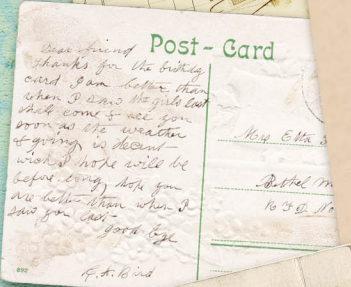 Post-Card
Dear friend
Thanks for the birthday
card I am better than
when I saw the girls last
shall come & see you
soon as the weather
& going is decent
wich I hope will be
before long, hope you
are better than when I
saw you last
good bye
Bird
892
Mrs Etta
Bethel
R F D No